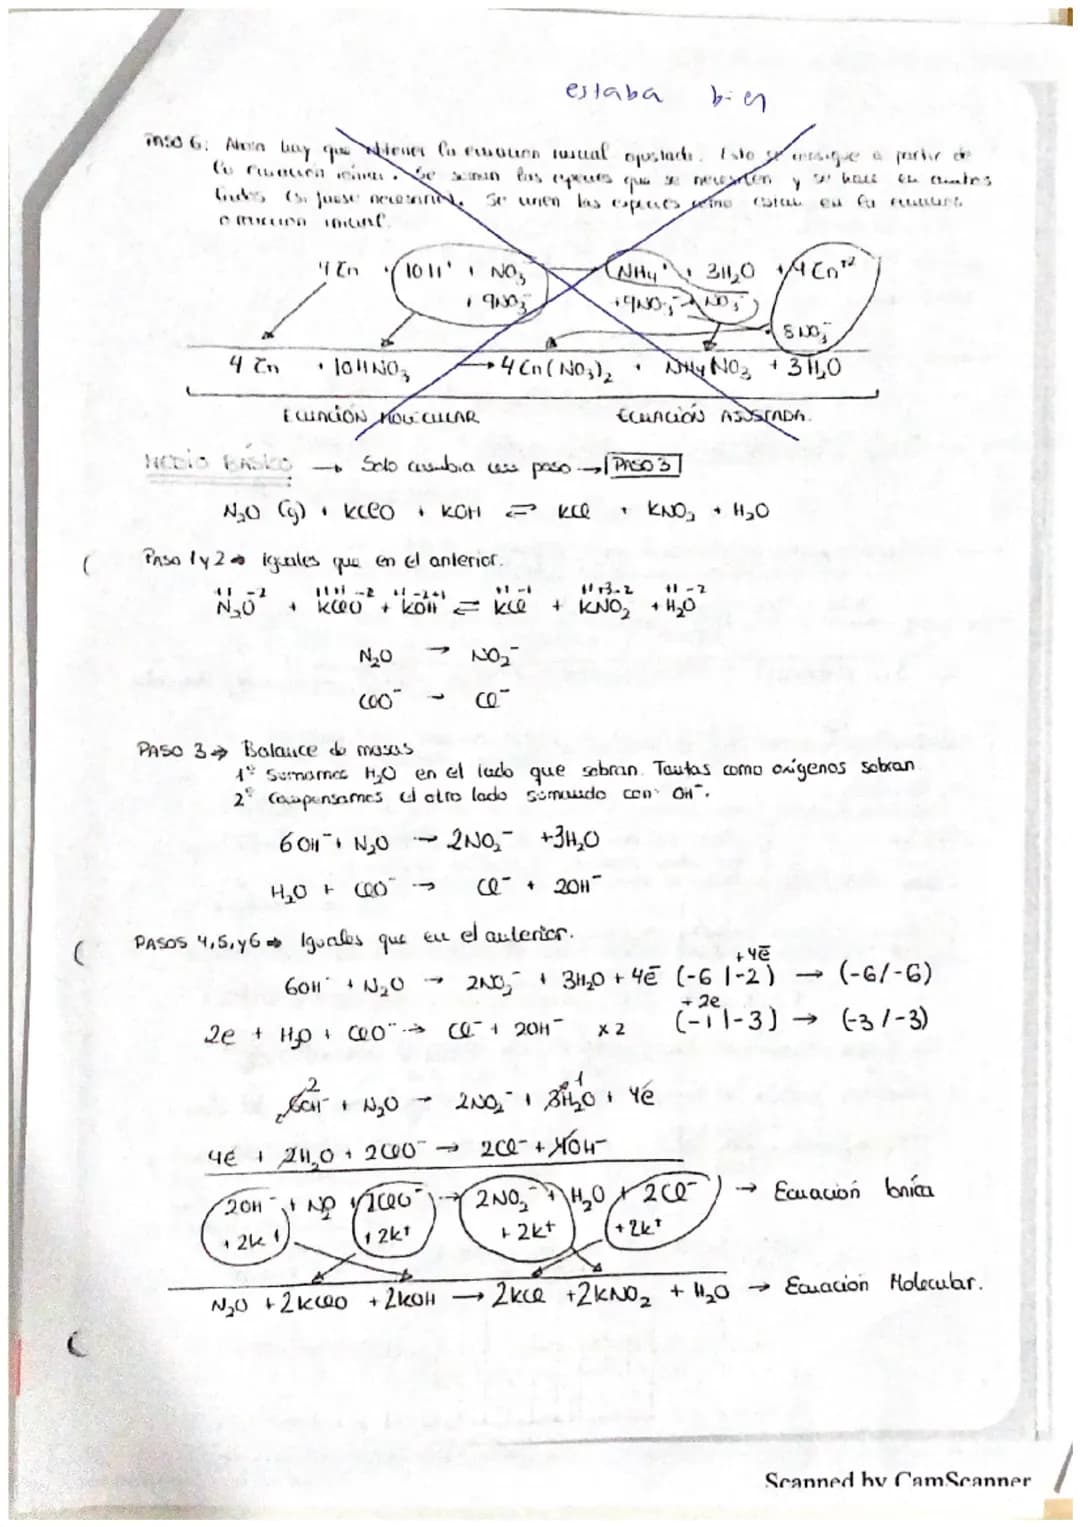 estaba bien
PASO 6: Ahora hay que obtener la ecuación inicial ajustada. Esto se consigue a partir de
la ecuación iónica. Se suman las especies que se necesiten y se hace en ambos
lados (si fuese necesario). Se unen las especies como estan en la
ecuación inicial.
4 Zn + 10 H⁺ + NO₃⁻ → NH₄⁺ + 3H₂O + 4 Zn⁺²
+ 9NO₃⁻ +9NO₃⁻ NO₃⁻ 8 NO₃⁻
4 Zn + 10HNO₃ → 4 Zn(NO₃)₂ + NH₄NO₃ + 3H₂O
ECUACIÓN MOLECULAR ECUACIÓN AJUSTADA.
MEDIO BÁSICO → Solo cambia un paso → PASO 3
N₂O (g) + KClO + KOH ⇌ KCl + KNO₂ + H₂O
PASO 1 y 2 → iguales que en el anterior.
+1 -2 +1+1 -2 +1 -2+1 +1 -1 +1+3-2 +1 -2
N₂O + KClO + KOH ⇌ KCl + KNO₂ + H₂O
N₂O → NO₂⁻
ClO⁻ → Cl⁻
PASO 3 → Balance de masas
1º Sumamos H₂O en el lado que sobran. Tantas como oxígenos sobran.
2º Compensamos el otro lado sumando con OH⁻.
6OH⁻ + N₂O → 2NO₂⁻ +3H₂O
H₂O + ClO⁻ → Cl⁻ + 2OH⁻
PASOS 4,5,y6 → Iguales que en el anterior.
+4e̅
6OH⁻ + N₂O → 2NO₂⁻ + 3H₂O + 4e̅ (-6 |-2) → (-6/-6)
+2e
2e + H₂O + ClO⁻ → Cl⁻ + 2OH⁻ x 2 (-1 |-3) → (-3/-3)
2 1
6OH⁻ + N₂O → 2NO₂⁻ + 3H₂O + 4e̅
4e̅ + 2H₂O + 2ClO⁻ → 2Cl⁻ + 4OH⁻
2OH⁻ + N₂O + 2ClO⁻ → 2NO₂⁻ + H₂O + 2Cl⁻ → Ecuación Iónica
+ 2K⁺ + 2K⁺ + 2K⁺ + 2K⁺
N₂O + 2KClO + 2KOH → 2KCl + 2KNO₂ + H₂O → Ecuación Molecular.
Scanned by CamScanner